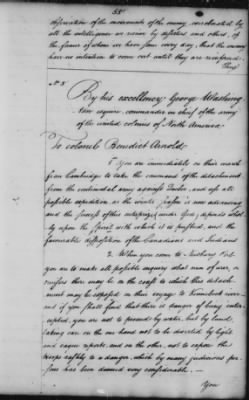 55
observation of the movements of the enemy, corroborated by
all the intelligence we receive by deserters and others, of
the former of whom we have some every day, that the enemy
have no intention to come out until they are reinforced.
No 8
By his excellency George Washing
ton esquire, commander in chief of the army
of the united colonies of North America.
To colonel Benedict Arnold.
1. You are immediately on their march
from Cambridge to take the command of the detachment
from the continental army against Quebec, and use all
possible expedition, as the winter season is now advancing
and the success of this enterprize, under God, depends whol
ly upon the spirit with which it is pushed, and the
favourable disposition of the Canadians and Indians
2. When you come to Newbury Port
you are to make all possible inquiry what men of war, or
cruisers there may be on the coast to which this detach
ment may be exposed in their voyage to Kennebeck river
and if you shall find that there is danger of being inter
cepted, you are not to proceed by water, but by land,
taking care on the one hand not to be diverted by light
and vague reports, and on the other, not to expose the
troops rashly to a danger, which by many judicious per
sons has been deemed very considerable.
You